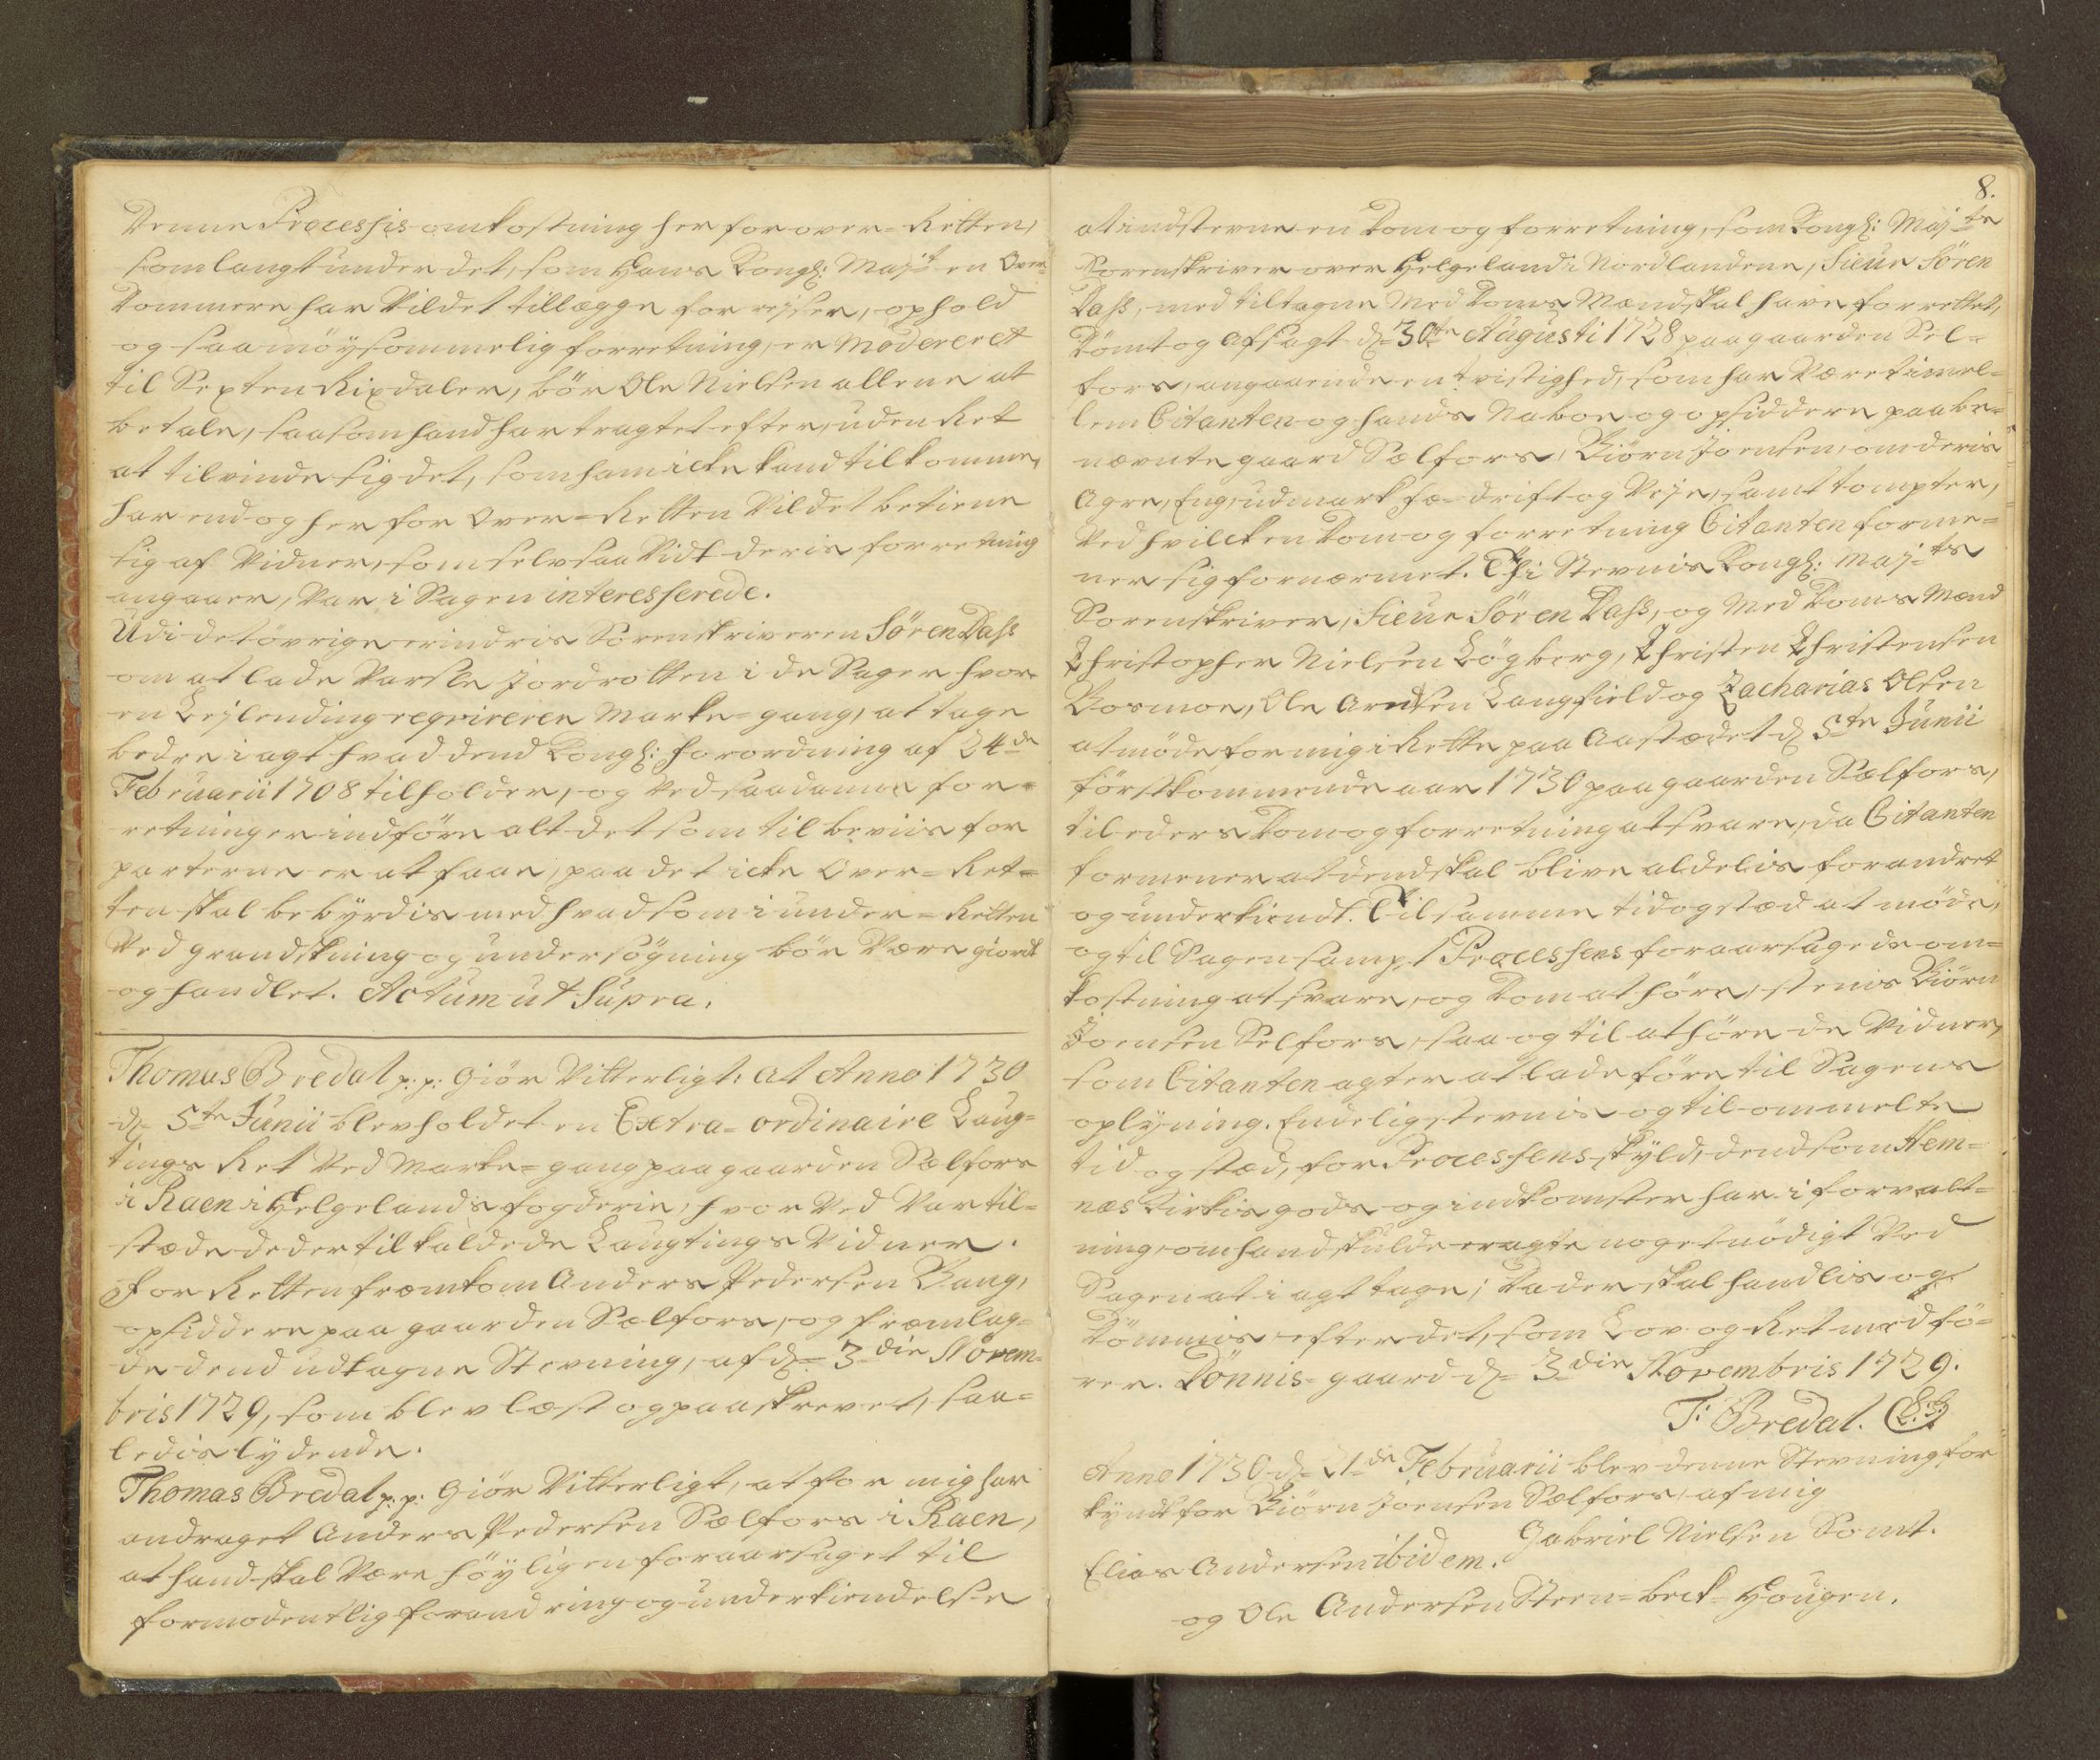 Denne Processis omkostning her for over-Retten,
som langt under det, som Hans Kongl: Maj:t en Over-
Dommere har Vildet tillægge for reiser, ophold
og saa möysommelig forretning, er Modereret
til Sexten Rixdaler, bör Ole Nielsen allene at
betale, saasom hand har tragtet efter, uden Ret
at tilvinde sig det, som ham icke kand tilkomme,
har end og her for Over-Retten Vildet betiene
sig af Vidner, som selv saa Vidt deris forretning
angaaer, Var i Sagen interesserede.
Udi det övrige erindris Sorenskriveren Sören Dass
om at lade Varsle Jordrotten i de Sager hvor
en Lejlending reqvirerer Marke-gang, at tage
bedre i agt hvad dend Kongl: Forordning af 24de
Februarii 1708 tilholder, og Ved saadanne for-
retninger indföre alt det som til beviis for
parterne er at faae, paa det icke Over-Ret-
ten skal bebyrdis med hvad som i under-Retten
Ved grandskning og undersögning bör Være giordt
og handlet. Actum ut Supra.
Thomas Bredal p: p: Giör Vitterligt: at Anno 1730
d= 5te Junii blev holdet en Extra-ordinaire Laug-
tings Ret Ved Marke-gang paa gaarden Sælfors
i Raen i Helgelands fogderie, hvor Ved Var til-
stæde de dertil kaldede Laugtings Vidner.
For Retten fremkom Anders Pedersen Bang,
opsiddere paa gaarden Sælfors, og fremlag-
de dend udtagne Stevning, af d= 3die Novem-
bris 1729, som blev læst og paaskrevet, saa-
ledis lydende.
Thomas Bredal p: p: Giör Vitterligt, at for mig har
andraget Anders Pedersen Sælfors i Raen,
at hand skal Være höyligen foraarsaget til
formodentlig forandring og underkiendelse
8.
at indstevne en Dom og forretning, som Kongl: Maj:ts
Sorenskriver over Helgeland i Nordlandene, Sieur Sören
Dass, med tiltagne Med Doms Mænd skal have forrettet,
Dömt og afsagt d= 30te Augusti 1728 paa gaarden Sel-
fors, angaaende en tvistighed, som har Været imel-
lem Citanten og hands Naboe og opsiddere paa be-
nævnte gaard Sælfors, Biörn Joensen, om deris
Agre, Eng, udmark, fæ-drift og Veje, samt tompter,
Ved hvilcken Dom og forretning Citanten forme-
ner sig fornærmet. Thi Stevnis Kongl: Maj:ts
Sorenskriver, Sieur Sören Dass, og Med Doms Mænd
Christopher Nielsen Lögberg, Christen Christensen
Bosmoe, Ole Arntsen Langfield og Zacharias Olsen
at möde for mig i Rette paa Aastædet d 5te Junii
förstkommende aar 1730 paa gaarden Sælfors,
til eders Dom og forretning at svare, da Citanten
formener at dend skal blive aldelis forandret
og underkiendt. Til samme tid og stæd at möde,
og til Sagen samt Processens foraarsagede om-
kostning at svare, og Dom at höre, stevnis Biörn
Joensen Selfors, saa og til at höre de Vidner,
som Citanten agter at lade före til Sagens
oplysning. Endelig stevnis og til ommelte
tid og stæd, for Processens skyld, dend som Hem-
næs Kirkis gods og indkomster har i forvalt-
ning, om hand skulde eragte noget nödigt Ved
Sagen at i agt tage; Da der skal handlis og
Dömmis efter det, som Lov og Ret medfö-
rer. Dönnis-gaard d= 3die Novembris 1729.
T: Bredal. (L.S.)
Anno 1730 d= 21de Februarii blev denne Stevning for
kyndt for Biörn Joensen Sælfors, af mig
Gabriel Nielsen Somt.
Elias Andersen ibidem.
og Ole Andersen Steen-beck-Hougen.